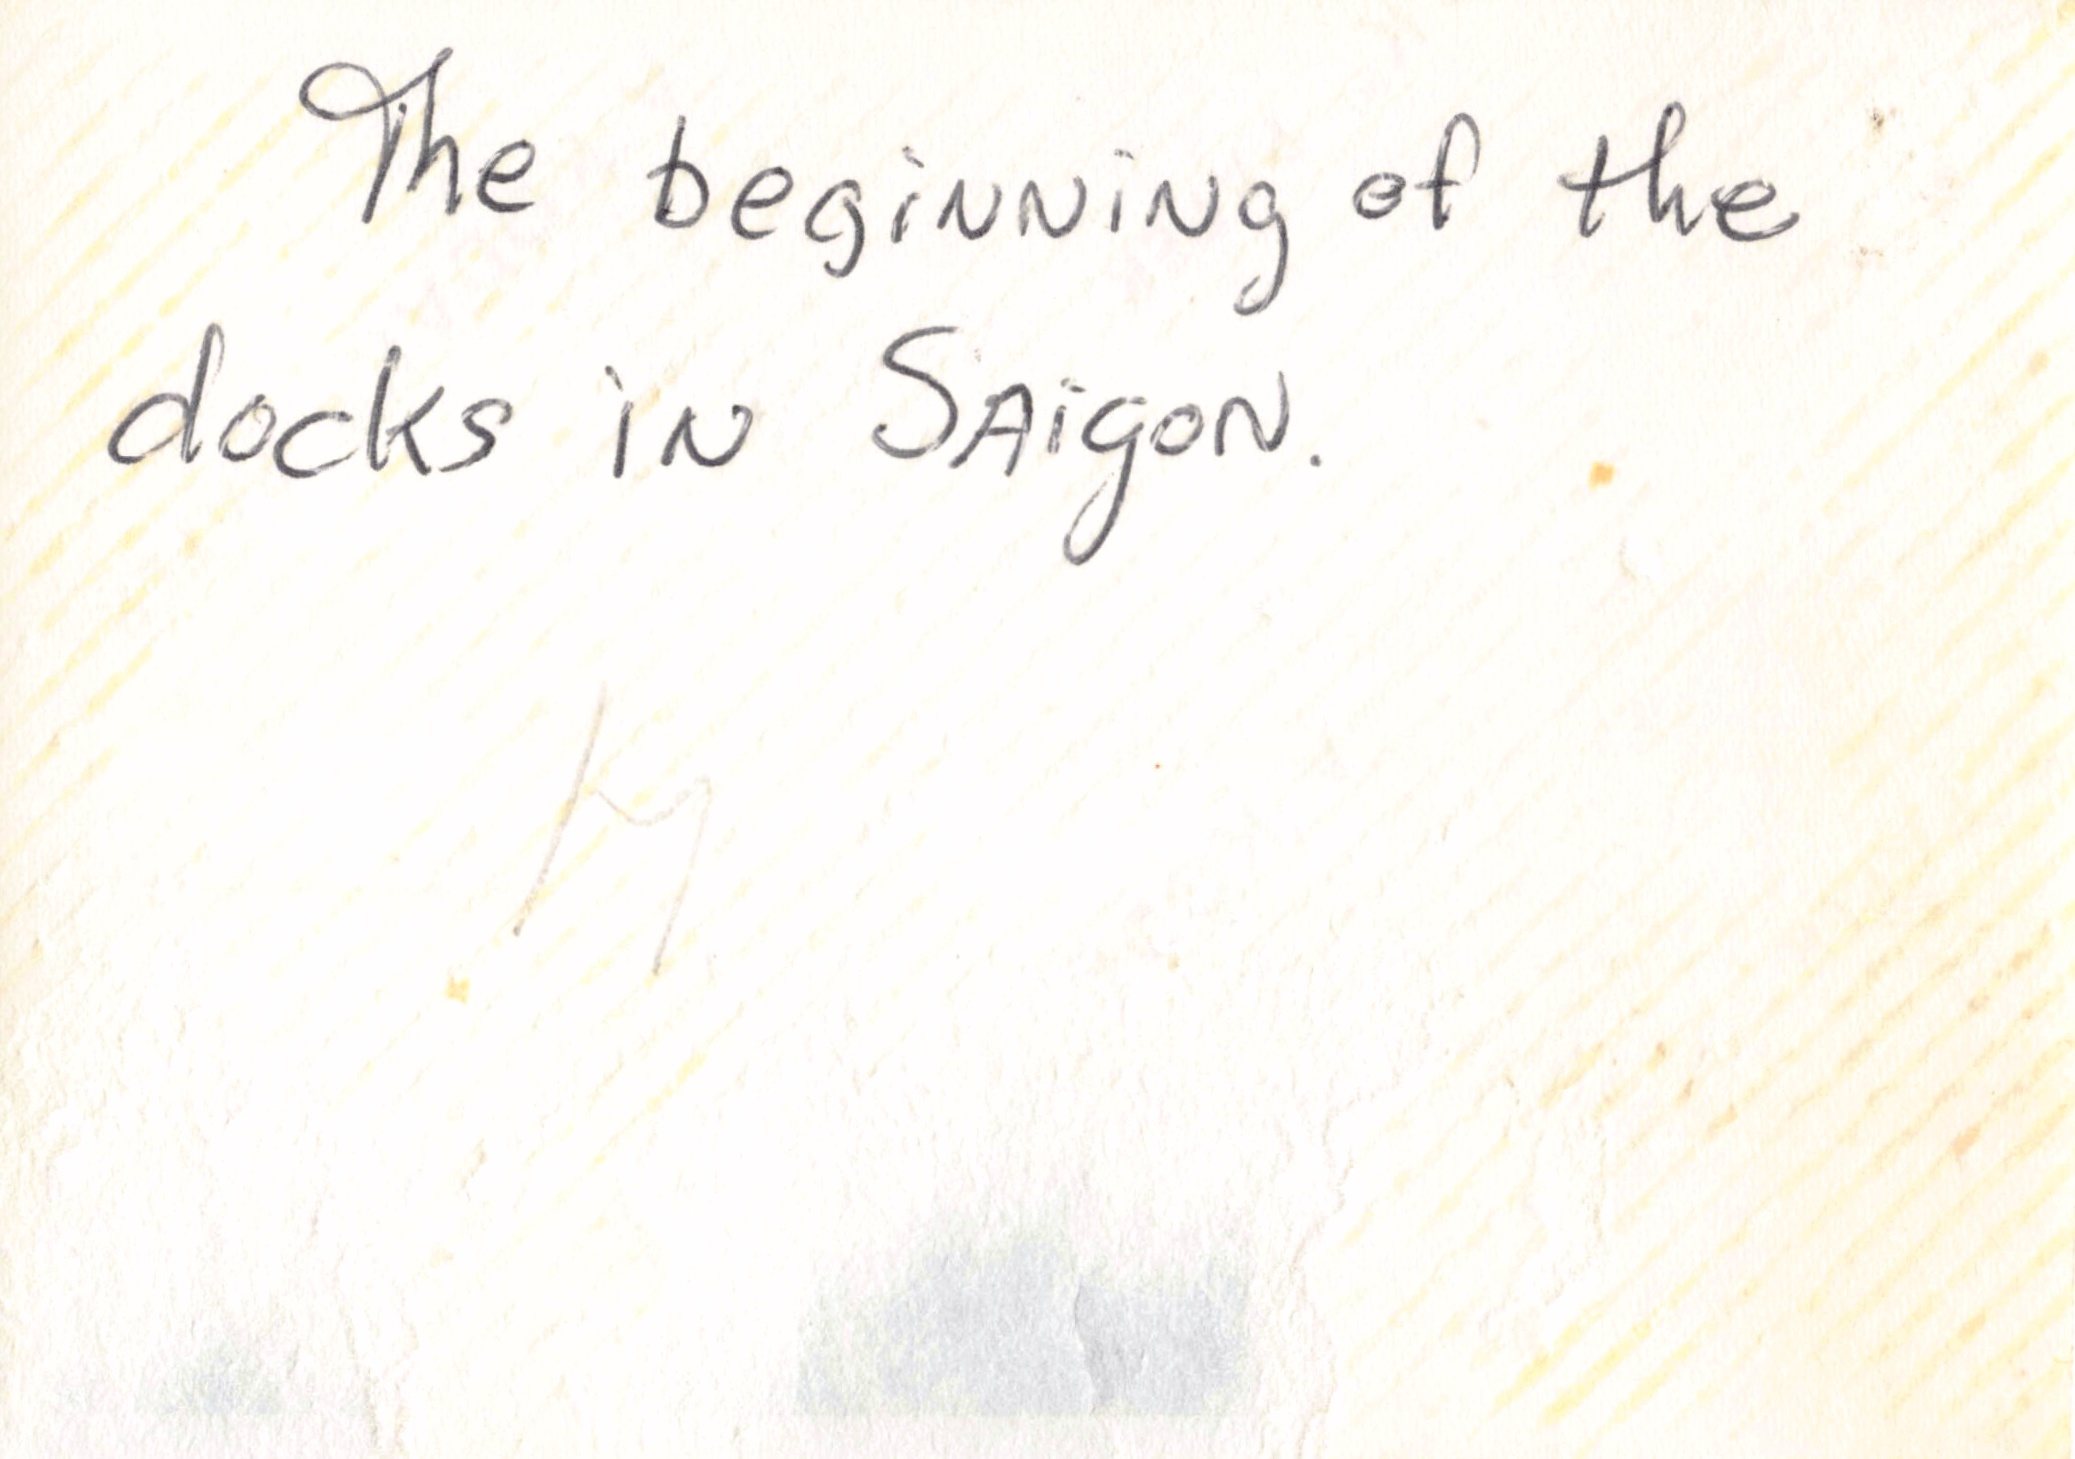 The beginning of the
docks in SAigoN.
M